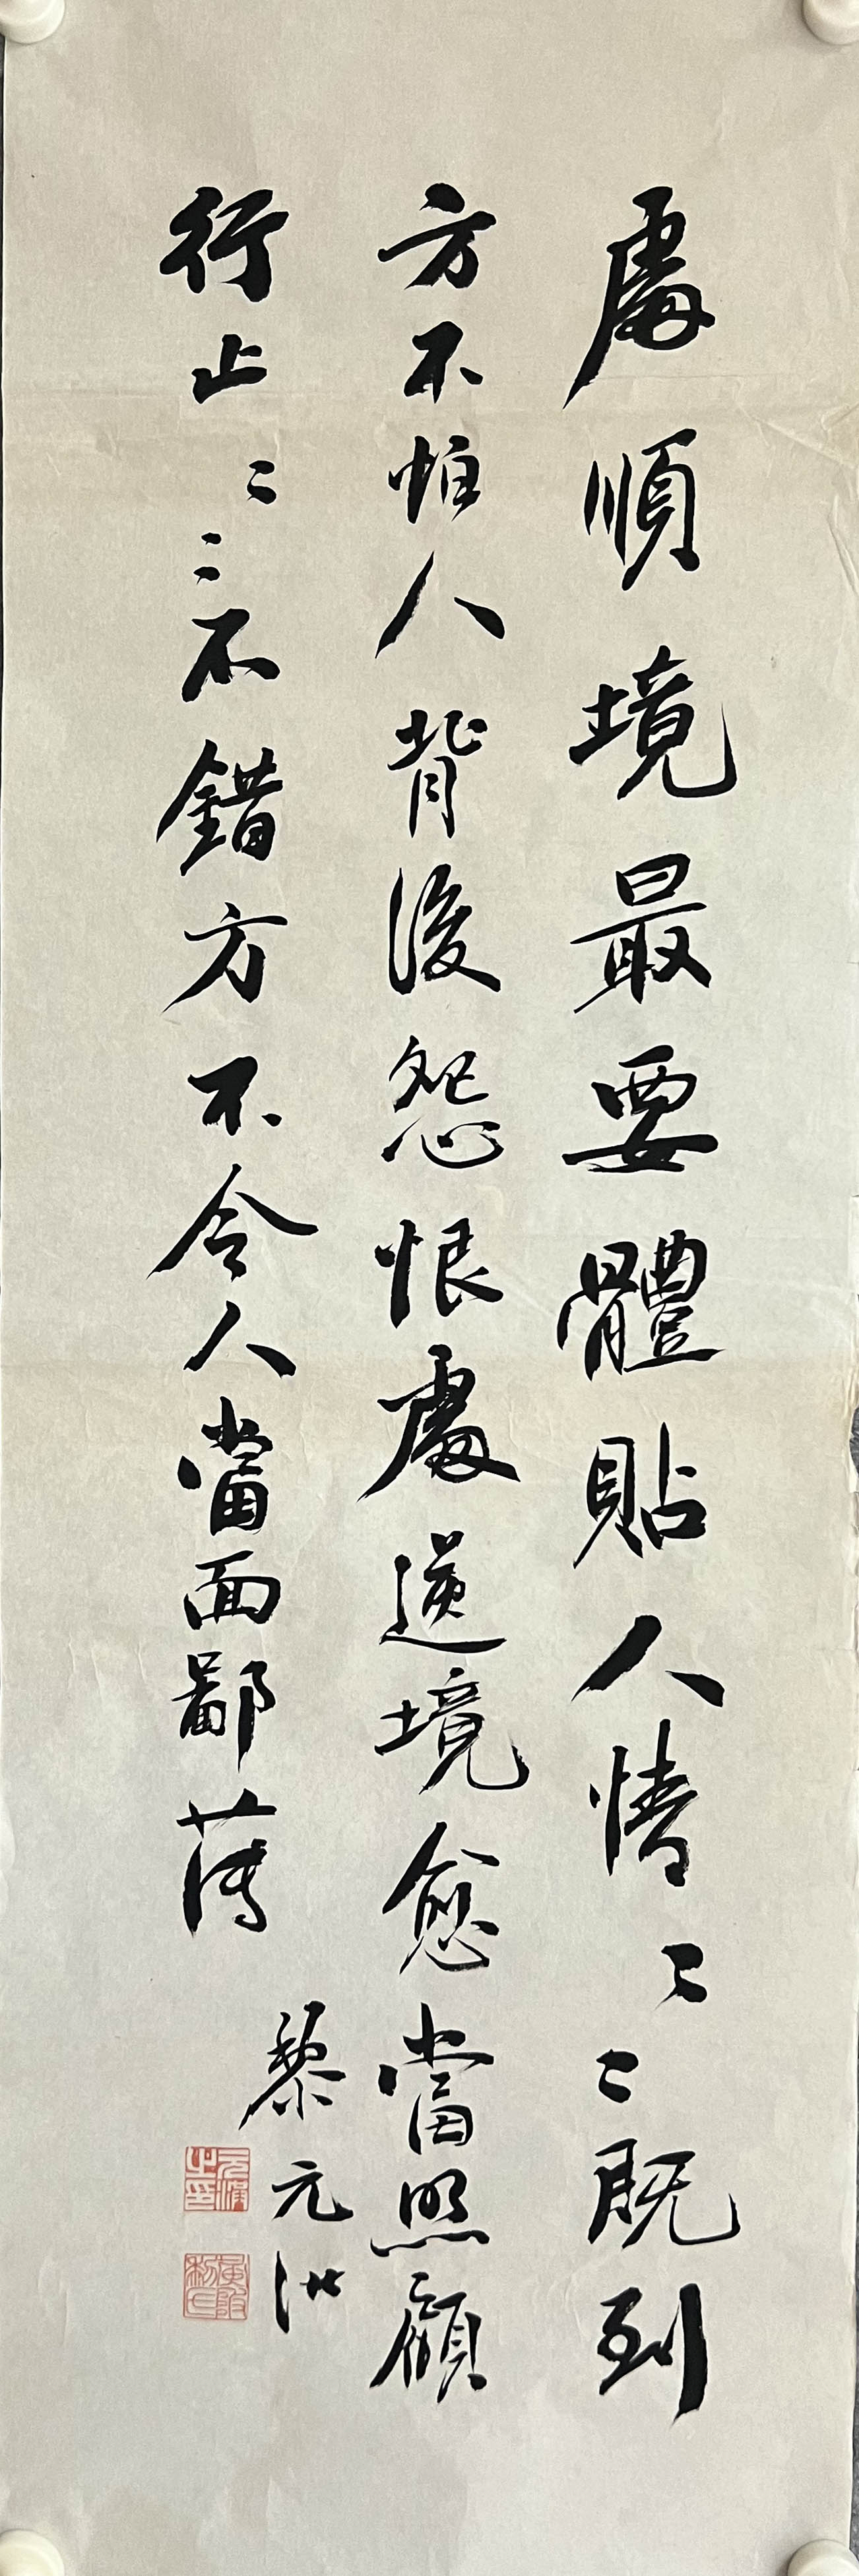 處順境最要體貼人情〻〻既到
方不怕人背後怨恨處逆境愈當照顧
行止〻〻不錯方不令人當面鄙薄
黎元洪